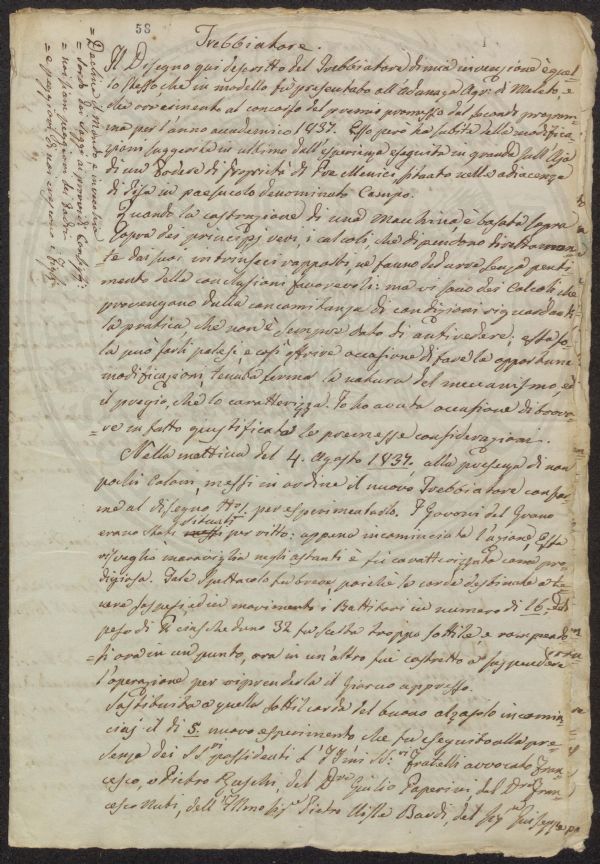 58
1
Trebbiatore.
Il Disegno qui descritto del Trebbiatore di mia invenzione è quel=
lo stesso che in modello fu presentato all' adunanza Agr: di Meleto, e
che ora cimento al concorso del premio promesso dal secondo program=
ma per l'anno accademico 1837. Esso però ha subìto delle modifica=
zioni suggerite in ultimo dall' esperienza eseguita in grande sull' Aja
di un Podere di proprietà di Eva Menici situato nella adiacenza
di Pisa in paesucolo denominato Campo.
Quando la costruzione di una Macchina è basata sopra
sopra dei principj veri, i calcoli che dipendono direttamen=
te dai suoi intrinseci rapporti ne fanno dedurre senza penti=
mento delle conclusioni favorevoli: ma vi sono dei Calcoli che
provengono dalla concomitanza di condizioni riguardanti
la pratica che non è sempre dato di antivedere: essa so=
la può farli palesi, e così offrire occasione di fare le opportune
modificazioni, tenuta ferma la natura del meccanismo, ed
il pregio, che lo caratterizza. Io ho avuta occasione di trova=
re in fatto giustificate le premesse considerazioni.
Nella mattina del 4. Agosto 1837. alla presenza di non
pochi Coloni, messi in ordine il nuovo Trebbiatore confor=
me al disegno N.° 1. per esperimentarlo. I Covoni del Grano
situati
erano stati messi per ritto: appena incominciata l'azione, Essa
risvegliò maraviglia negli astanti e fu caratterizzata come pro=
digiosa. Tale spettacolo fu breve, poichè le corde destinate a te=
nere sospesi, ed in movimento i Battitori in numero di 16. del
peso di ciascheduno 32 fu scelta troppo sottile, e rompendo=
si ora in un punto, ora in un' altro fui costretto a sospendere
l'operazione per riprenderla il giorno appresso.
Sostituita a quella sottil corda del buono alzajolo incomin=
ciai il dì 5. nuovo esperimento che fu eseguito alla pre=
senza dei SS.ri possidenti gl' Ill'mi SS.ri Fratelli avvocato Fran=
cesco, e Pietro Ruschi, del D.re Giulio Paperini, del D.re Fran=
cesco Nuti, dell' Ill'mo Sig.r Pietro Bardi, del Sig.r Giuseppe
= Declina il Mondo e invecchia
= noi siam peggiori dei Padri
= e peggiori di noi i Figli